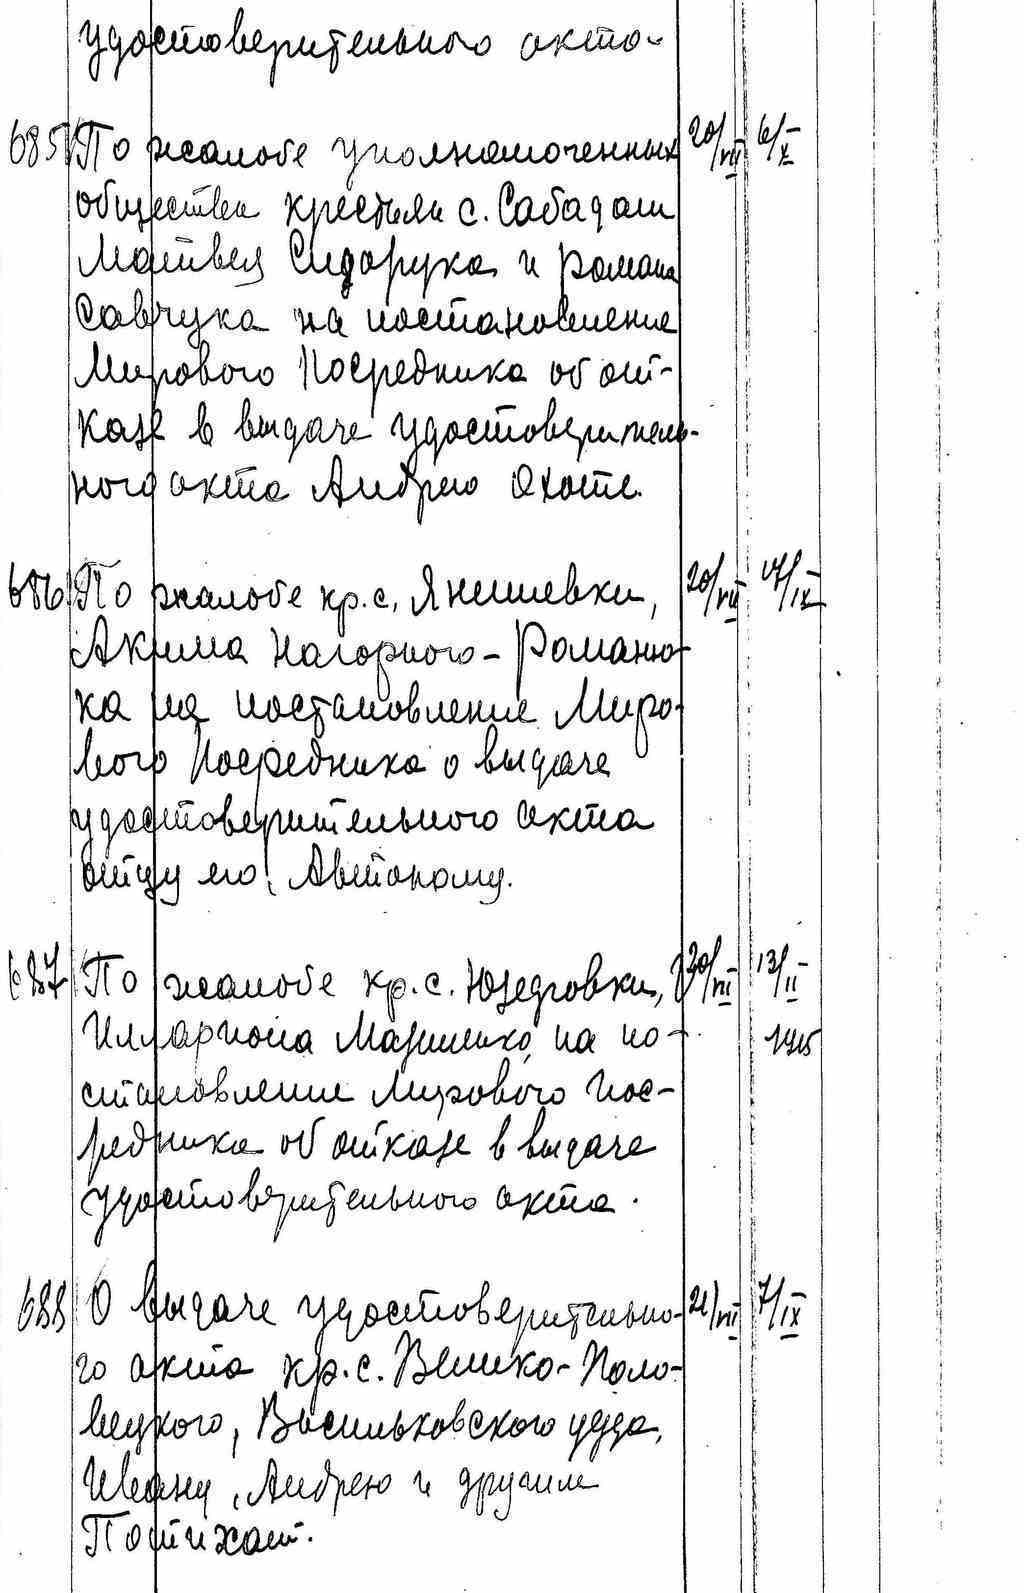 удостоверительного акта
685 По жалобе уполномоченных 20/VII 6/X
общества крестьян с. Сабадаш
Матвея Сидорука и Романа
Савчука на постановление
Мирового Посредника об от-
казе в выдаче удостоверитель-
ного акта Андрею Охоте.
686 По жалобе кр. с. Янишевки, 20/VII 17/IX
Акима Нагорного-Романю-
ка на постановление Миро-
вого Посредника о выдаче
удостоверительного акта
отцу его, Автоному.
687 По жалобе кр. с. 20/VII 13/II
Иллариона на по- 1915
становление Мирового Пос-
редника об отказе в выдаче
удостоверительного акта.
688 О выдаче удостоверительно- 21/VII 7/IX
го акта кр. с. Велико-Поло-
вецкого, Васильковского уезда,
Ивану, Андрею и другим
Потихам.